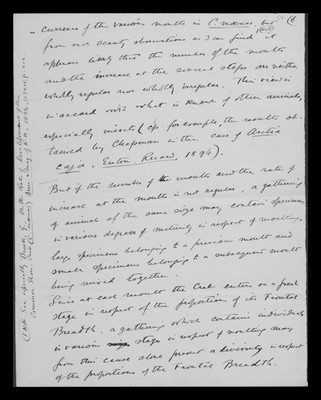 (6
currence of the various moults in C. maenas, but
from our scanty observations as I can find it
appears likely that the number of the moults
and the increase at the several steps are neither
wholly regular nor wholly irregular. This view is
in accord with what is known of other animals,
especially insects (cp. for example, the results ob-
tained by Chapman in the case of Arctia
caja. Entom. Record, 1894).
But if the number of the moults and the rate of
increase at the moults is not regular, a gathering
of animals of the same size may contain specimens
in various degrees of maturity in respect of moulting,
large specimens belonging to a previous moult and
small specimens belonging to a subsequent moult
being mixed together.
Since at each moult the Crab enters on a fresh
stage in respect of the proportions of its Frontal
Breadth, a gathering which contains individuals
in various stages in respect of moulting may
from this cause alone present a diversity in respect
of the proportions of the Frontal Breadth.
(Note. See specially Brook, G., on the Rate of Development of the
Common Shore Crab